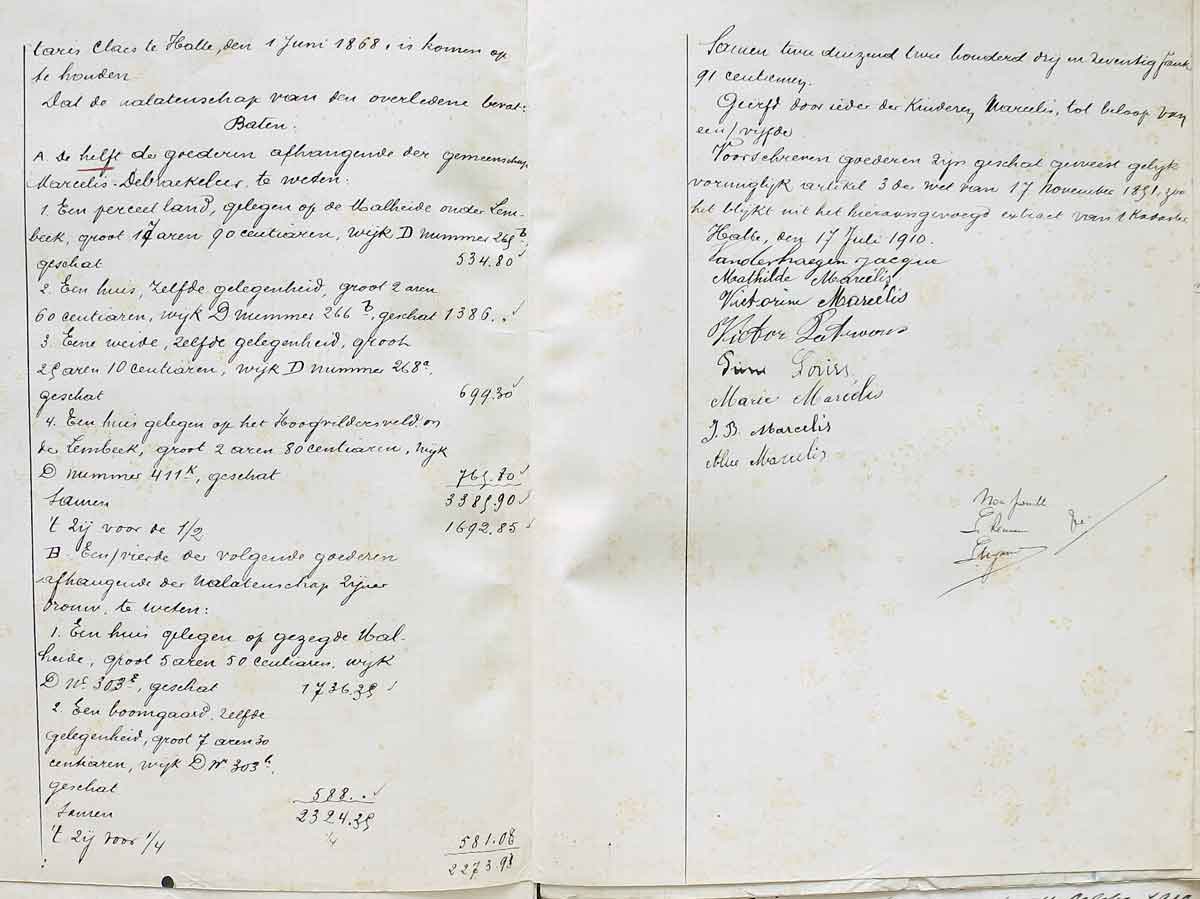 taris Claes te Halle, den 1 Juni 1868, is komen op
te houden
Dat de nalatenschap van den overledene bevat:
Baten.
A De helft der goederen afhangende der gemeenschap
Marcelis-Debraekeleer, te weten:
1. Een perceel land, gelegen op de Malheide onder Lem-
beek, groot 17 aren 90 centiaren, wijk D nummer 265 b,
geschat 534.80
2. Een huis, zelfde gelegenheid, groot 2 aren
60 centiaren, wijk D nummer 266 b, geschat 1386..
3. Eene weide, zelfde gelegenheid, groot
25 aren 10 centiaren, wijk D nummer 268 a,
geschat 699.30
4. Een huis gelegen op het Hoogveldersveld on
der Lembeek, groot 2 aren 80 centiaren, wijk
D nummer 411 k, geschat 765.80
Samen 3385.90
't zij voor de 1/2 1692.85
B. Een/vierde der volgende goederen
afhangende der nalatenschap zijner
vrouw, te weten:
1. Een huis gelegen op gezegde Mal-
heide, groot 5 aren 50 centiaren, wijk
D Nr 303 e, geschat 1736.35
2. Een boomgaard, zelfde
gelegenheid, groot 7 aren 30
centiaren, wijk D Nr 303 b,
geschat 588..
Samen 2324.35
't zij voor 1/4 1/4 581.08
2273.93
Samen twee duizend twee honderd drij en zeventig frank
91 centiemen.
Geërfd door ieder der Kinderen Marcelis, tot beloop van
een/vijfde
Voorschreven goederen zijn geschat geweest gelijk
vormuglijk artikel 3 der wet van 17 november 1851, zoo
het blijkt uit het hieraangevoegd extract van 't Kadaster
Halle, den 17 Juli 1910.
Vanderhaegen Jacque
Mathilde Marcelis
Victorine Marcelis
Victor
Marie Marcelis
J. B. Marcelis
Marcelis